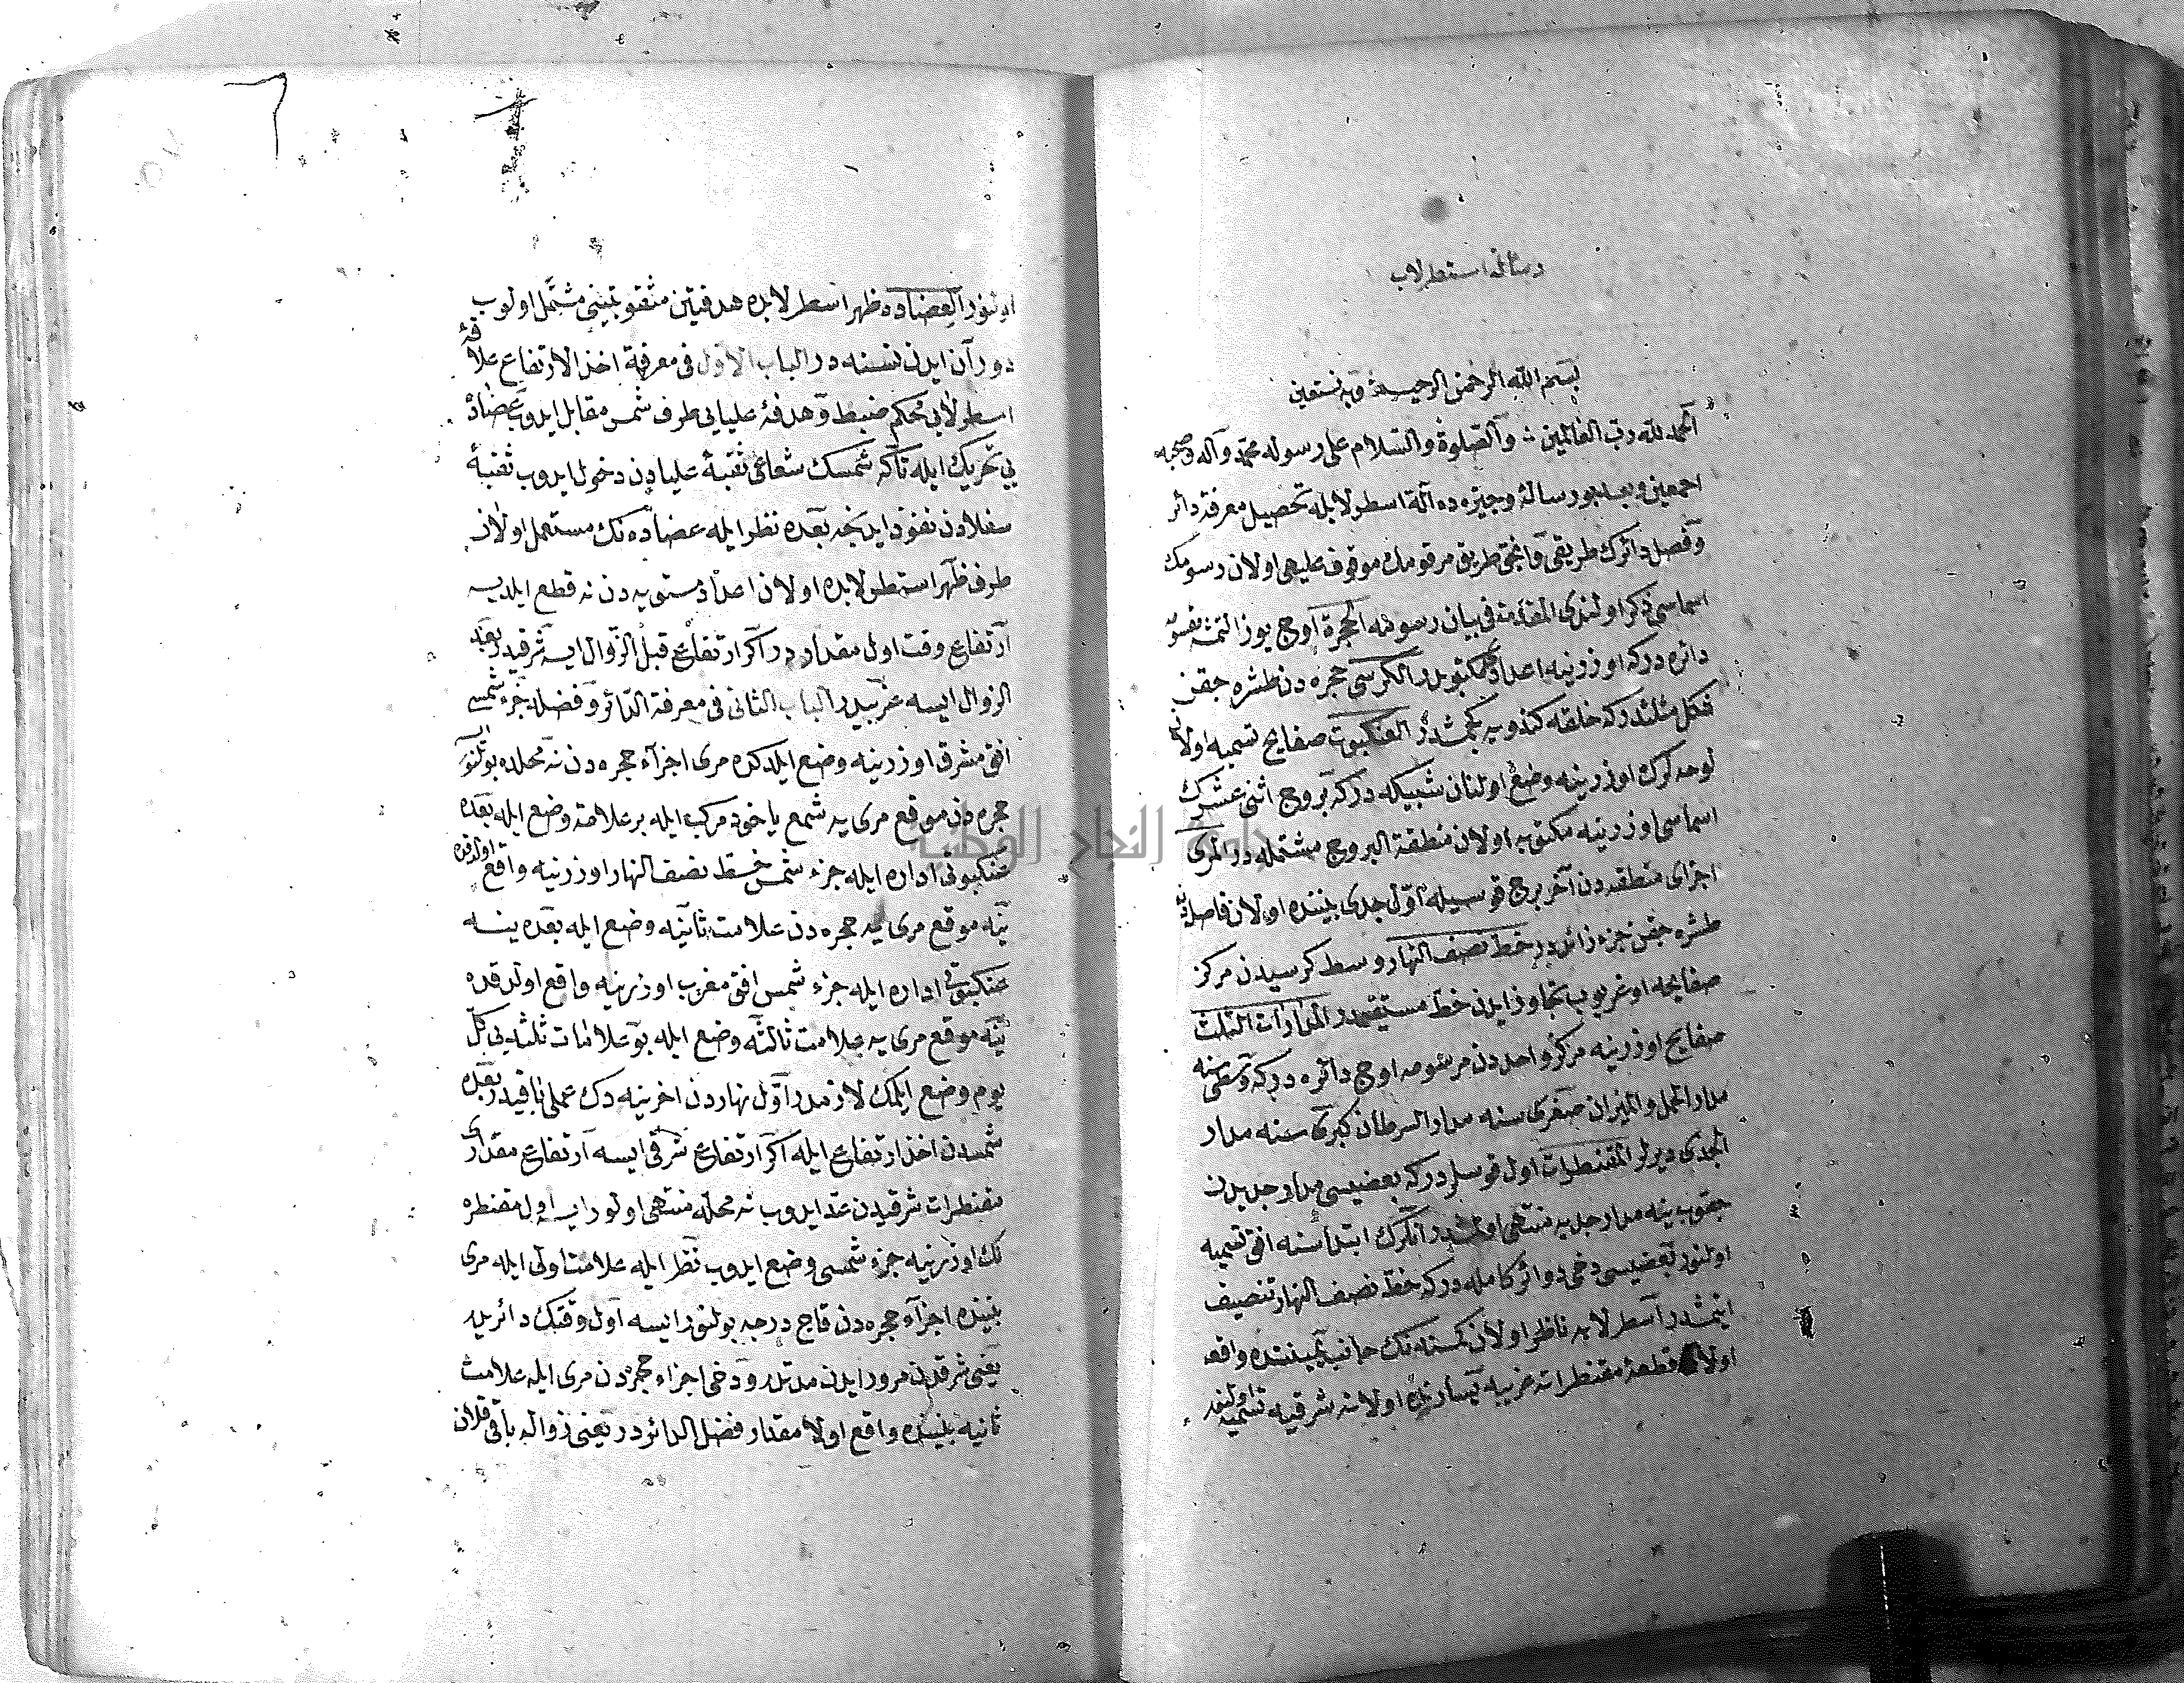 رساله اسطرلاب
بسم الله الرحمن الرحيم وبه نستعين
الحمد لله رب العالمين والصلوة والسلام على رسوله محمد وآله وصحبه
اجمعين وبعد بو رسالهٔ وجيزه ده آلة اسطرلابله تحصيل معرفة دائر
وفضل دائرك طريقى وانجق طريق مرقومك موقوف عليهى اولان رسومك
اسماسى ذكر اولندى المقدمة فى بيان رسومه الحجرة اوج يوز التمش
دائره دركه اوزرينه اعداد مكتوبدر الكرسى حجره دن طشره جقن
شكل مثلثدركه حلقه كندويه كجمشدر العنكبوت صفايح تسميه اولان
لوحه لرك اوزرينه وضع اولنان شبيكه دركه بروج اثنى عشرك
اسماسى اوزرينه مكتوبه اولان منطقة البروج مشتمله در المرى
اجزاى منطقه دن آخر برج قوسيله اول جدى بيننده اولان فاصله دن
طشره جقن جزء زائددر خط نصف النهار وسط كرسيدن مركز
صفايحه اوغريوب تجاوز ايدن خط مستقيمدر المدارات الثلث
صفايح اوزرينه مركز واحددن مرسومه اوج دائره دركه وسطى سنه
مدار الحمل والميزان صغرى سنه مدار السرطان كبرى سنه مدار
الجدى ديرلر المقنطرات اول قوسلردركه بعضيسى مدار جديدن
جقوب ينه مدار جديه منتهى اولمشدر انلرك ابتداسنه افق تسميه
اولنور بعضيسى دخى دوائر كامله دركه خط نصف النهار تنصيف
ايتمشدر اسطرلابه ناظر اولان كمسنه نك جانب يميننده واقع
اولان قطعهٔ مقنطراته غربيه يسارنده اولانه شرقيه تسميه اولنور
اولنور العضاده ظهر اسطرلابده هدفتين مثقوبتينى مشتمل اولوب
دوران ايدن نسنه در الباب الاول فى معرفة اخذ الارتفاع علاقهٔ
اسطرلابى محكم ضبط وهدفهٔ عليايى طرف شمس مقابل ايدوب عضادهٔ
يى تحريك ايله تاكه شمسك شعاعى ثقبهٔ عليادن دخول ايدوب ثقبهٔ
سفلادن نفوذ ايدنجه بعده نظر ايله عضاده نك مستعمل اولان
طرف ظهر اسطرلابده اولان اعداد مستويه دن نه قطع ايلديسه
ارتفاع وقت اول مقداردر اكر ارتفاع قبل الزوال ايسه شرقيدر بعد
الزوال ايسه غربيدر الباب الثانى فى معرفة الدائر وفضله جزء شمسى
افق مشرق اوزرينه وضع ايلدكده مرى اجزاء حجره دن نه محلده بولنور
حجره دن موقع مرى يه شمع ياخود مركب ايله بر علامة وضع ايله بعده
عنكبوتى اداره ايله جزء شمس خط نصف النهار اوزرينه واقع اولدقده
ينه موقع مرى يه حجره دن علامت ثانيه وضع ايله بعده ينه
عنكبوتى اداره ايله جزء شمس افق مغرب اوزرينه واقع اولدقده
ينه موقع مرى يه علامت ثالثه وضع ايله بو علامات ثلثه يى كل
يوم وضع ايلمك لازمدر اول نهاردن اخرينه دك عملى باقيدر بعده
شمسدن اخذ ارتفاع ايله اكر ارتفاع شرقى ايسه ارتفاع مقدارى
مقنطرات شرقيدن عد ايدوب نه محله منتهى اولور ايسه اول مقنطره
نك اوزرينه جزء شمسى وضع ايدوب نظر ايله علامت اولى ايله مرى
بيننده اجزاء حجره دن قاج درجه بولنور ايسه اول وقتك دائريدر
يعنى شرقدن مرور ايدن مدتدر ودخى اجزاء حجره دن مرى ايله علامت
ثانيه بيننده واقع اولان مقدار فضل الدائردر يعنى زواله باقى قلان
جامعة النجاح الوطنية